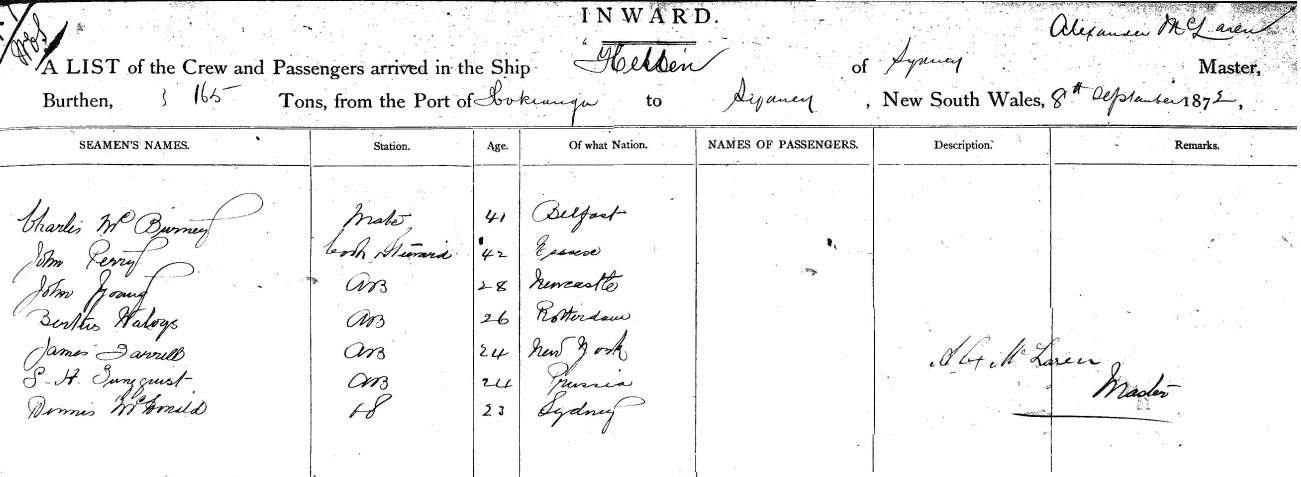 INWARD.
Alexander McLaren
A LIST of the Crew and Passengers arrived in the Ship of Sydney Master,
Burthen, 165 Tons, from the Port of Hokianga to Sydney, New South Wales, 8th September 1872,
SEAMEN'S NAMES. Station. Age. Of what Nation. NAMES OF PASSENGERS. Description. Remarks.
Charles Mc Burney Mate 41 Belfast
John Perry Cook Steward 42 Essex
John Young AB 28 Newcastle
26 Rotterdam
James Farrell AB 24 New York
AB 24 Prussia
Dennis 23 Sydney
Alex McLaren
Master